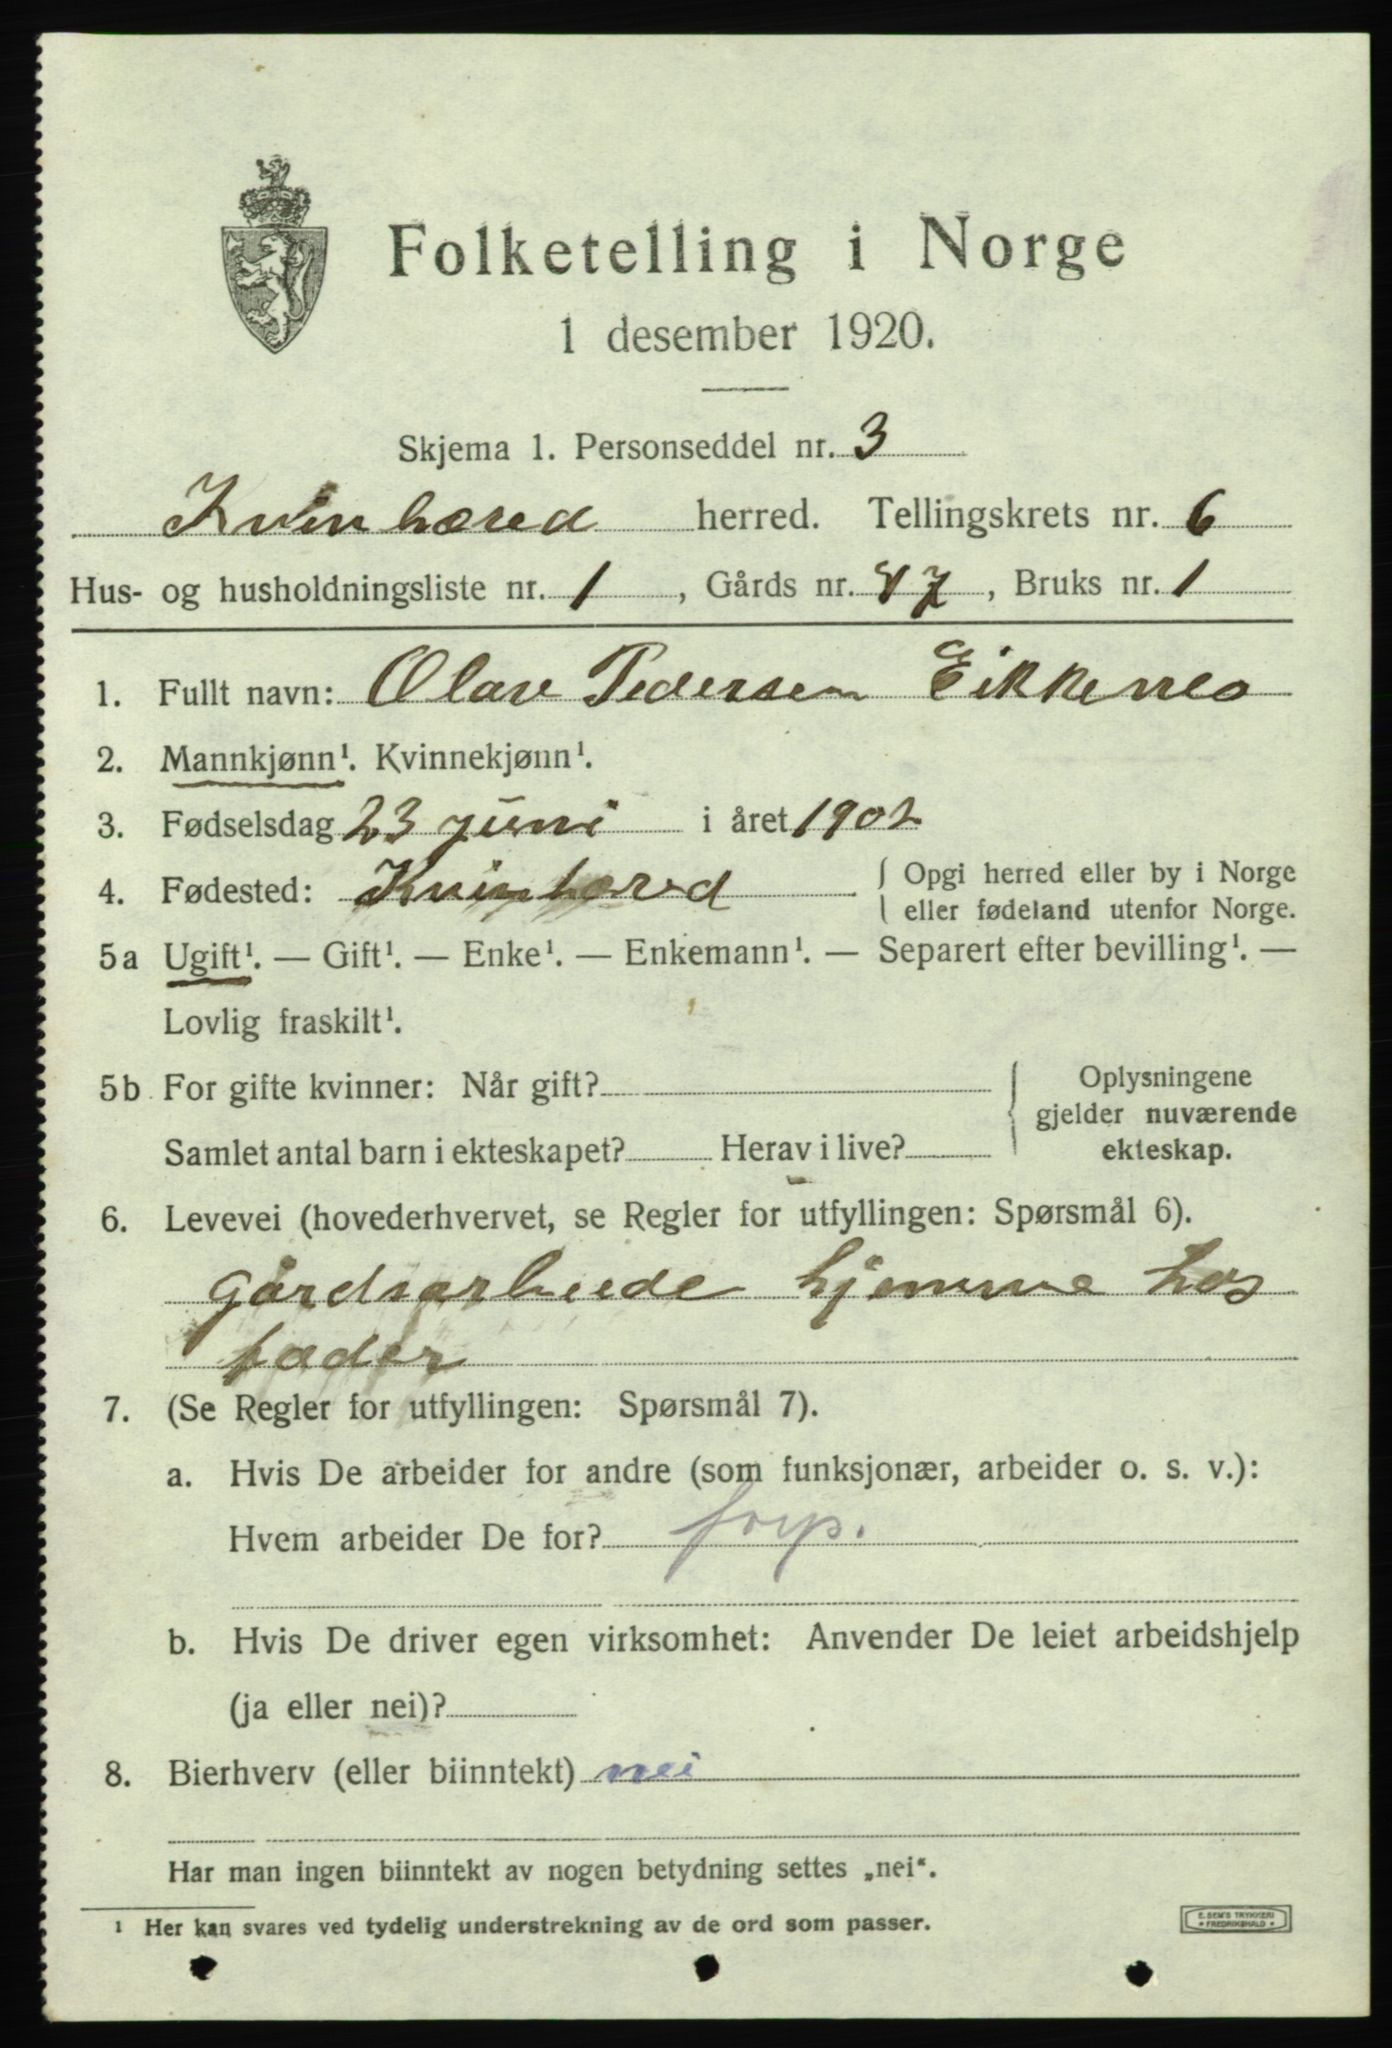 Folketelling i Norge
1 desember 1920.
Skjema 1. Personseddel nr. 3
Kvinhæred herred. Tellingskrets nr. 6
Hus- og husholdningsliste nr. 1, Gårds nr. 87, Bruks nr. 1
1. Fullt navn: Olav Pedersen Eikkenes
2. Mannkjønn¹. Kvinnekjønn¹.
3. Fødselsdag 23 juni i året 1902
4. Fødested: Kvinhæred { Opgi herred eller by i Norge
eller fødeland utenfor Norge.
5a Ugift¹. — Gift¹. — Enke¹. — Enkemann¹. — Separert efter bevilling¹. —
Lovlig fraskilt¹.
5b For gifte kvinner: Når gift?
Samlet antal barn i ekteskapet? Herav i live?
{ Oplysningene
gjelder nuværende
ekteskap.
6. Levevei (hovederhvervet, se Regler for utfyllingen: Spørsmål 6).
gårdsarbeide hjemme hos
fader
7. (Se Regler for utfyllingen: Spørsmål 7).
a. Hvis De arbeider for andre (som funksjonær, arbeider o. s. v.):
Hvem arbeider De for?
b. Hvis De driver egen virksomhet: Anvender De leiet arbeidshjelp
(ja eller nei)?
8. Bierhverv (eller biinntekt) nei
Har man ingen biinntekt av nogen betydning settes „nei“.
¹ Her kan svares ved tydelig understrekning av de ord som passer.
E. SEM'S TRYKKERI
FREDRIKSHALD